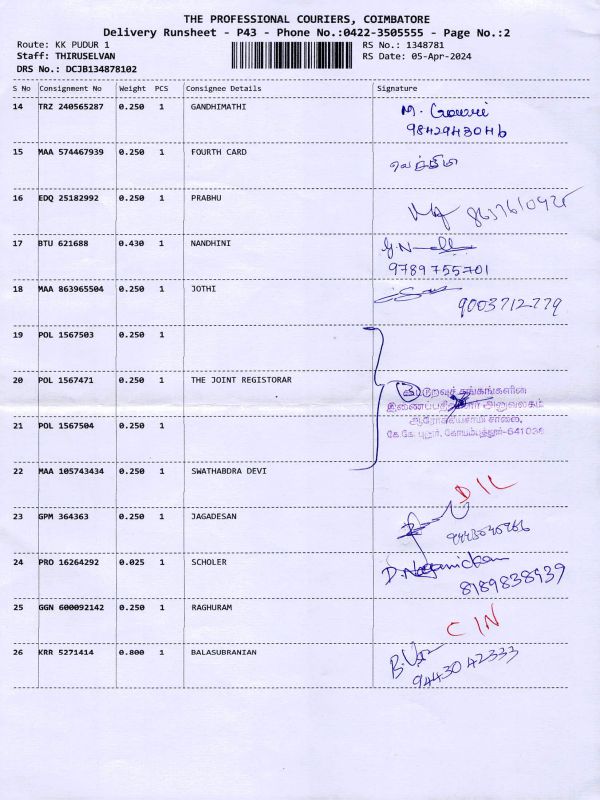 THE PROFESSIONAL COURIERS, COIMBATORE
Delivery Runsheet - P43 - Phone No.:0422-3505555 - Page No.:2
Route: KK PUDUR 1 RS No.: 1348781
Staff: THIRUSELVAN RS Date: 05-Apr-2024
DRS No.: DCJB134878102
S No Consignment No Weight PCS Consignee Details Signature
14 TRZ 240565287 0.250 1 GANDHIMATHI M. Gowri
9842943046
15 MAA 574467939 0.250 1 FOURTH CARD
16 EDQ 25182992 0.250 1 PRABHU
17 BTU 621688 0.430 1 NANDHINI
9789755701
18 MAA 863965504 0.250 1 JOTHI
9003712779
19 POL 1567503 0.250 1
20 POL 1567471 0.250 1 THE JOINT REGISTORAR
3 கூட்டுறவுச் சங்கங்களின்
இணைப்பதிவாளர் அலுவலகம்
21 POL 1567504 0.250 1
கே.கே. புதூர், கோயம்புத்தூர்-641038
22 MAA 105743434 0.250 1 SWATHABDRA DEVI
D I L
23 GPM 364363 0.250 1 JAGADESAN
24 PRO 16264292 0.025 1 SCHOLER
8189838939
25 GGN 600092142 0.250 1 RAGHURAM
C IN
26 KRR 5271414 0.800 1 BALASUBRANIAN
9443042333